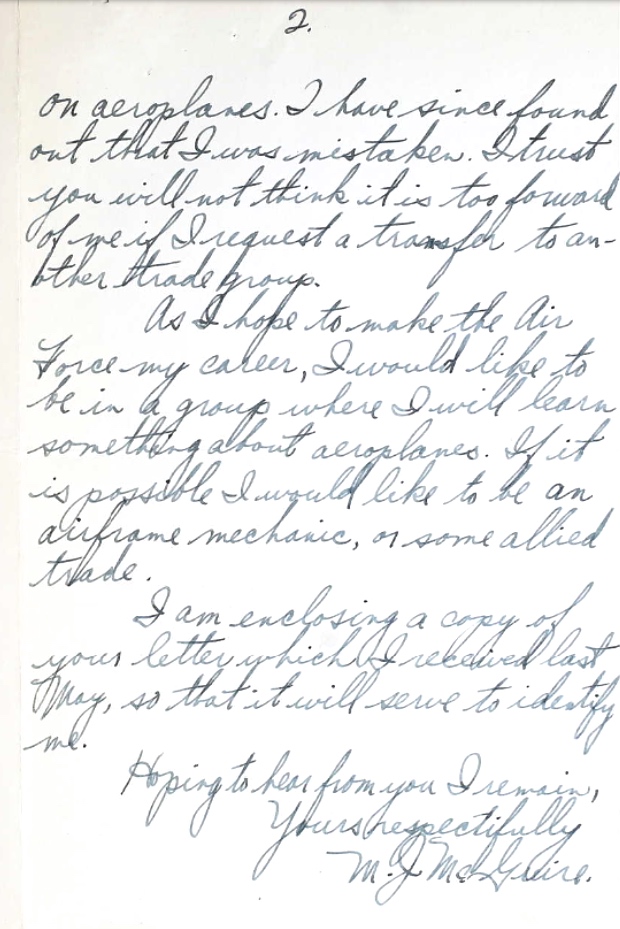 2.
on aeroplanes. I have since found
out that I was mistaken. I trust
you will not think it is too forward
of me if I request a transfer to an-
other trade group.
As I hope to make the Air
Force my career, I would like to
be in a group where I will learn
something about aeroplanes. If it
is possible I would like to be an
airframe mechanic, or some allied
trade.
I am enclosing a copy of
your letter which I received last
May, so that it will serve to identify
me.
Hoping to hear from you I remain,
Yours respectifully
M. J. McGuire.